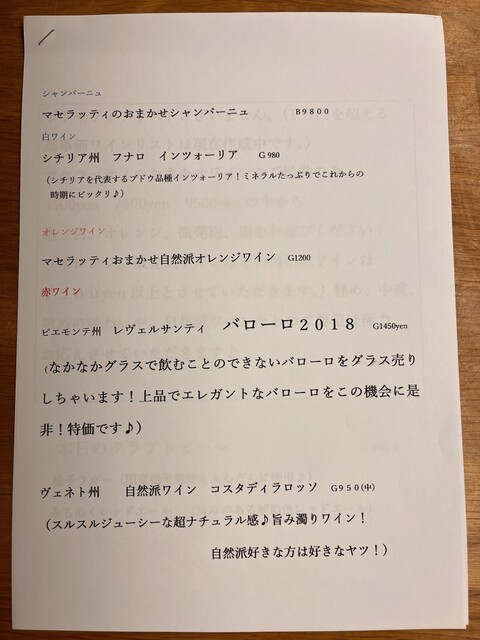 シャンパーニュ
マセラッティのおまかせシャンパーニュ B9800
白ワイン
シチリア州 フナロ インツォーリア G980
（シチリアを代表するブドウ品種インツォーリア！ミネラルたっぷりでこれからの
時期にピッタリ♪）
オレンジワイン
マセラッティおまかせ自然派オレンジワイン G1200
赤ワイン
ピエモンテ州 レヴェルサンティ バローロ2018 G1450yen
（なかなかグラスで飲むことのできないバローロをグラス売り
しちゃいます！上品でエレガントなバローロをこの機会に是
非！特価です♪）
ヴェネト州 自然派ワイン コスタディラロッソ G950（中）
（スルスルジューシーな超ナチュラル感♪旨み濁りワイン！
自然派好きな方は好きなヤツ！）